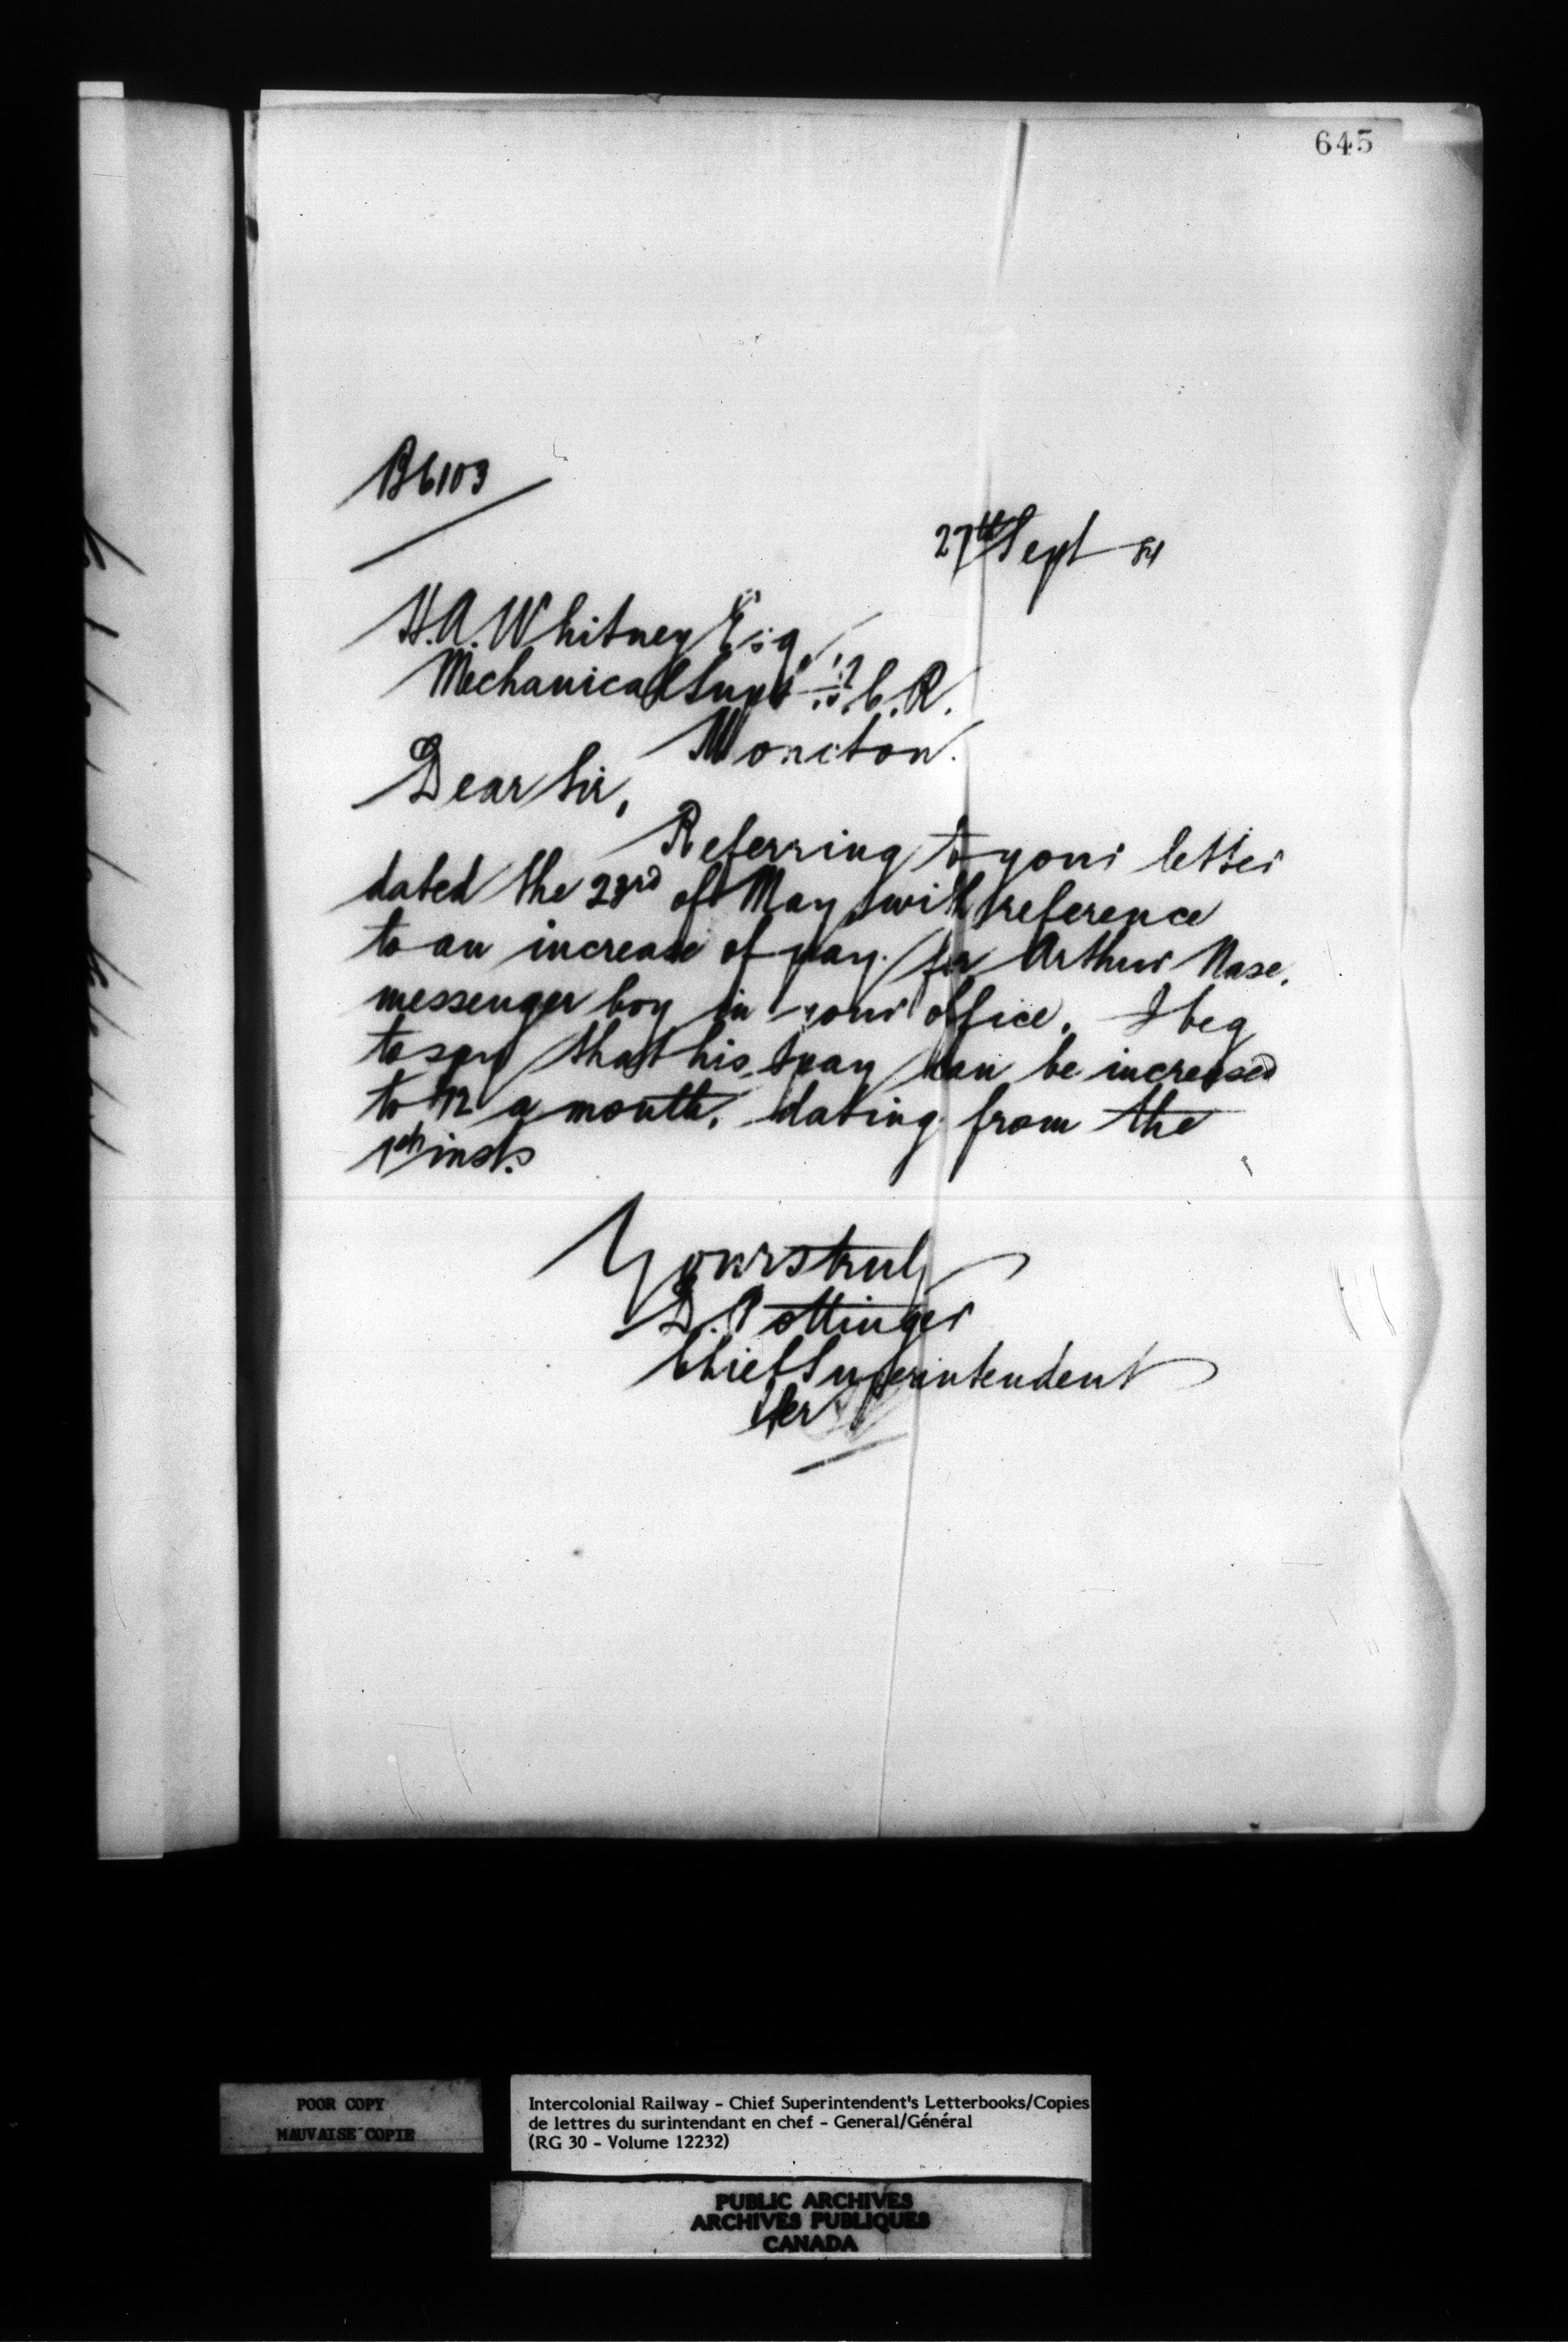 645
B6103
27th Sept 84
H.A. Whitney Esq.
Mechanical Supt I.C.R.
Moncton.
Dear Sir,
Referring to your letter
dated the 23rd of May, with reference
to an increase of pay for Arthur Nase,
messenger boy in your office, I beg
to say that his pay can be increased
to $12 a month, dating from the
1st inst.
Yours truly
D. Pottinger
Chief Superintendent
Per
POOR COPY
MAUVAISE COPIE
Intercolonial Railway - Chief Superintendent's Letterbooks/Copies
de lettres du surintendant en chef - General/Général
(RG 30 - Volume 12232)
PUBLIC ARCHIVES
ARCHIVES PUBLIQUES
CANADA